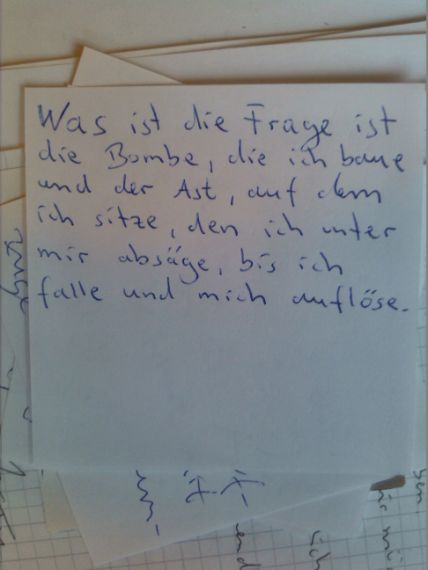 Was ist die Frage ist
die Bombe, die ich baue
und der Ast, auf dem
ich sitze, den ich unter
mir absäge, bis ich
falle und mich auflöse.